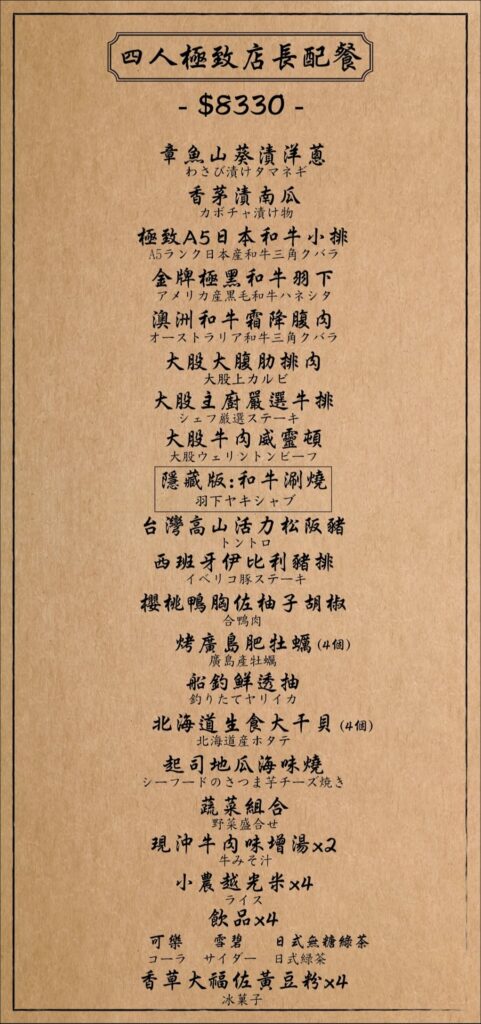 四人極致店長配餐
- $8330 -
章魚山葵漬洋蔥
わさび漬けタマネギ
香茅漬南瓜
カボチャ漬け物
極致A5日本和牛小排
A5ランク日本産和牛三角クバラ
金牌極黑和牛羽下
アメリカ産黒毛和牛ハネシタ
澳洲和牛霜降腹肉
オーストラリア和牛三角クバラ
大股大腹肋排肉
大股上カルビ
大股主廚嚴選牛排
シェフ厳選ステーキ
大股牛肉威靈頓
大股ウェリントンビーフ
隱藏版:和牛涮燒
羽下ヤキシャブ
台灣高山活力松阪豬
トントロ
西班牙伊比利豬排
イベリコ豚ステーキ
櫻桃鴨胸佐柚子胡椒
合鴨肉
烤廣島肥牡蠣(4個)
廣島産牡蠣
船釣鮮透抽
釣りたてヤリイカ
北海道生食大干貝(4個)
北海道産ホタテ
起司地瓜海味燒
シーフードのさつま芋チーズ焼き
蔬菜組合
野菜盛合せ
現沖牛肉味增湯x2
牛みそ汁
小農越光米x4
ライス
飲品x4
可樂 雪碧 日式無糖綠茶
コーラ サイダー 日式緑茶
香草大福佐黃豆粉x4
冰菓子